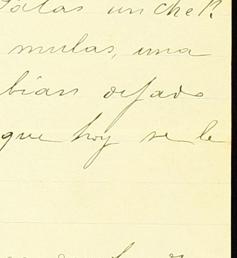 un che
mulas, una
bian dejado
que hoy se le